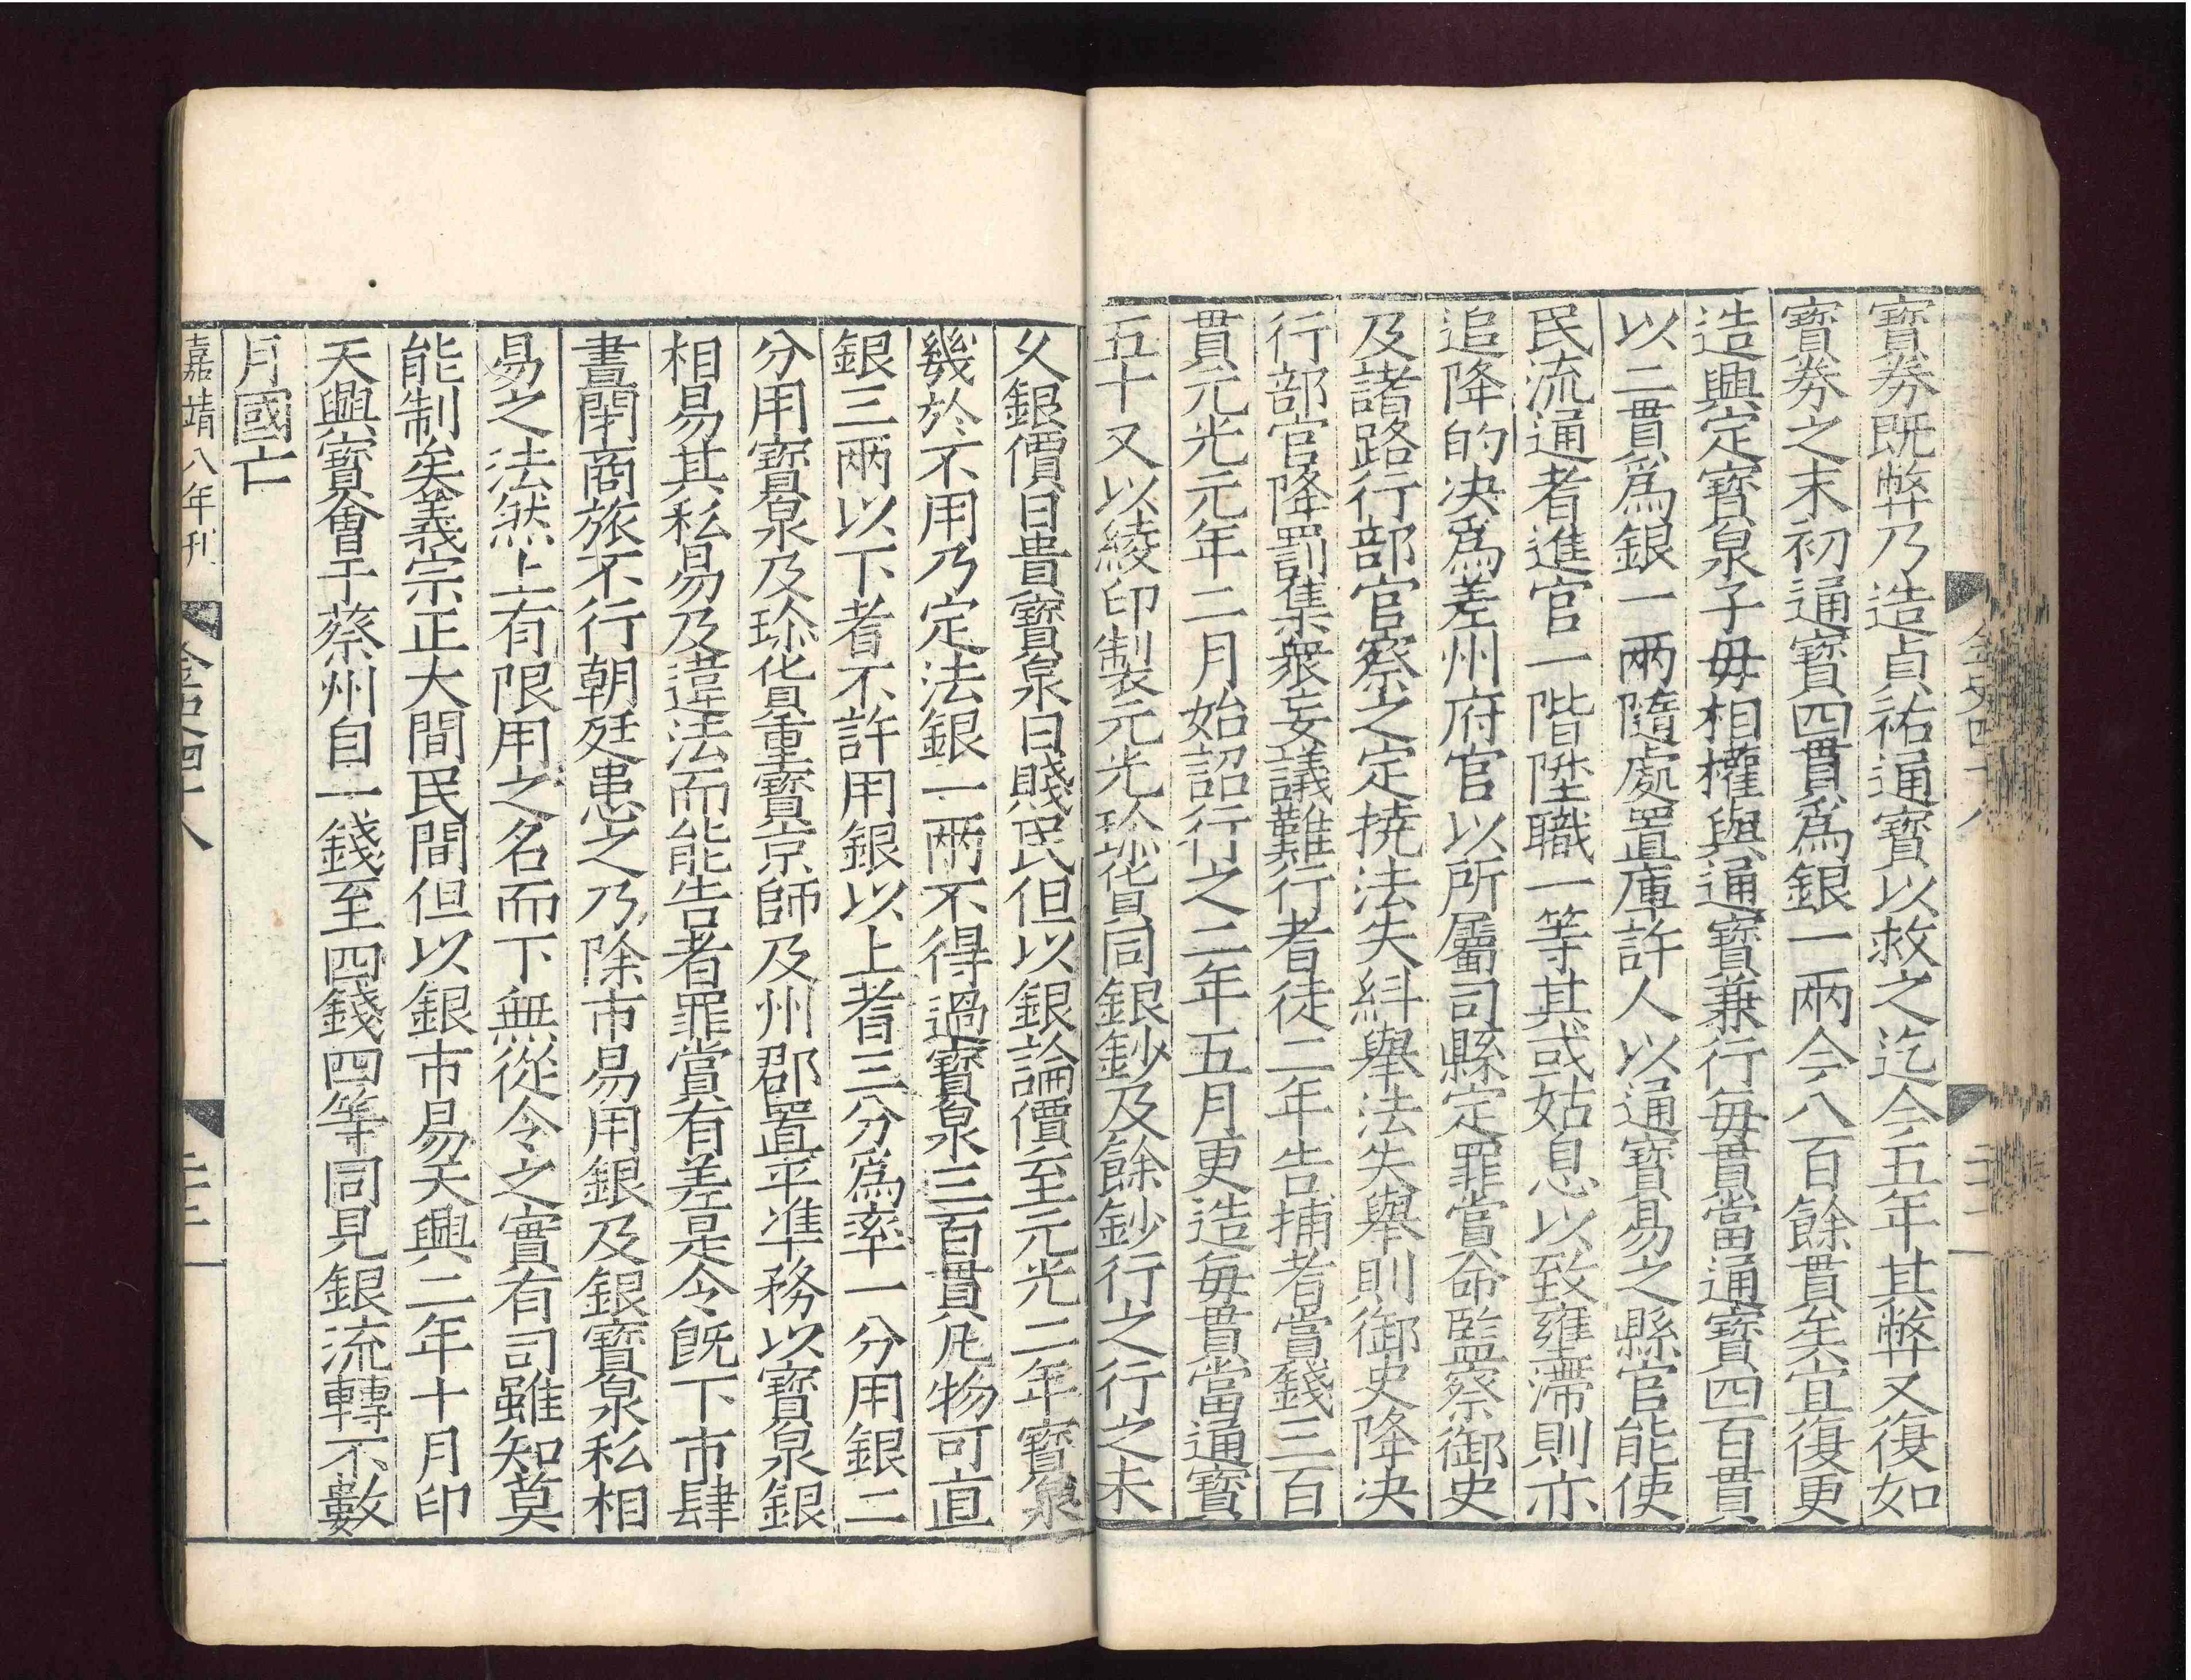 寳券既弊乃造貞祐通寳以救之迄今五年其弊又復如
寳券之末初通寳四貫爲銀一兩今八百餘貫矣宜復更
造興定寳泉子母相權與通寳兼行每貫當通寳四百貫
以二貫爲銀一兩隨處置庫許人以通寳易之縣官能使
民流通者進官一階陞職一等其或姑息以致壅滯則亦
追降的决爲差州府官以所屬司縣定罪賞命監察御史
及諸路行部官察之定撓法失糾舉法失舉則御史降决
行部官降罰集衆妄議難行者徒二年告捕者賞錢三百
貫元光元年二月始詔行之二年五月更造每貫當通寳
五十又以綾印製元光珎貨同銀鈔及餘鈔行之行之未
久銀價日貴寳泉日賤民但以銀論價至元光二年寳泉
幾於不用乃定法銀一兩不得過寳泉三百貫凡物可直
銀三兩以下者不許用銀以上者三分爲率一分用銀二
分用寳泉及珎貨重寳京師及州郡置平準務以寳泉銀
相易其私易及違法而能告者罪賞有差是令既下市肆
晝閉商旅不行朝廷患之乃除市易用銀及銀寳泉私相
易之法然上有限用之名而下無從令之實有司雖知莫
能制矣義宗正大間民間但以銀市易天興二年十月印
天興寳會于蔡州自一錢至四錢四等同見銀流轉不數
月國亡
嘉靖八年刊
金史四十八